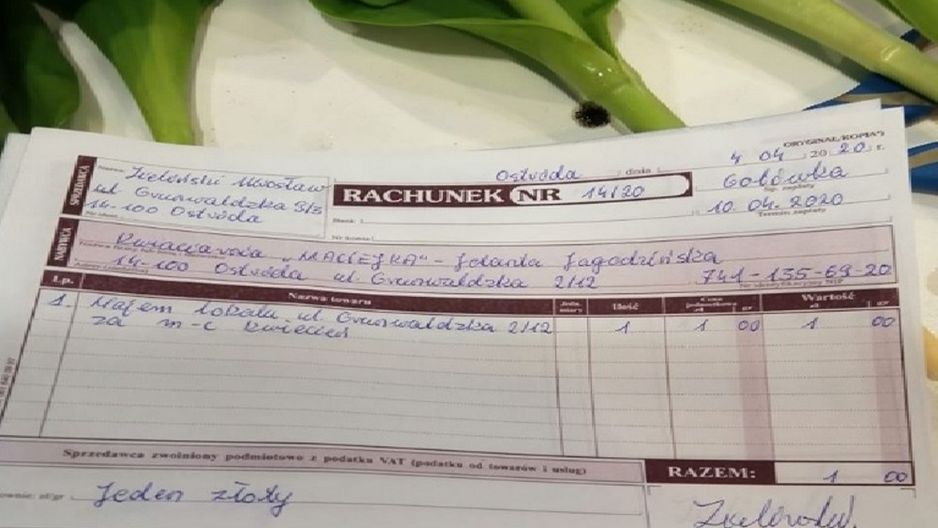 ORYGINAŁ/KOPIA*)
SPRZEDAWCA
Nazwa
Zieliński Mirosław
ul Grunwaldzka 3/3
14-100 Ostróda
Ostróda dnia 4 04 2020 r.
RACHUNEK NR 14/20
Gotówka
10.04.2020
Termin zapłaty
Bank:
Nr konta
NABYWCA
Kwiaciarnia „MACIEJKA" - Jolanta Jagodzińska
14-100 Ostróda ul. Grunwaldzka 2/12 741-135-69-20
Lp. Nazwa towaru Jedn. miary Ilość Cena jednostkowa zł gr Wartość zł gr
1. Najem lokalu ul. Grunwaldzka 2/12 1 1 00 1 00
za m-c kwiecień
Sprzedawca zwolniony podmiotowo z podatku VAT (podatku od towarów i usług)
RAZEM: 1 00
Słownie: zł/gr Jeden złoty